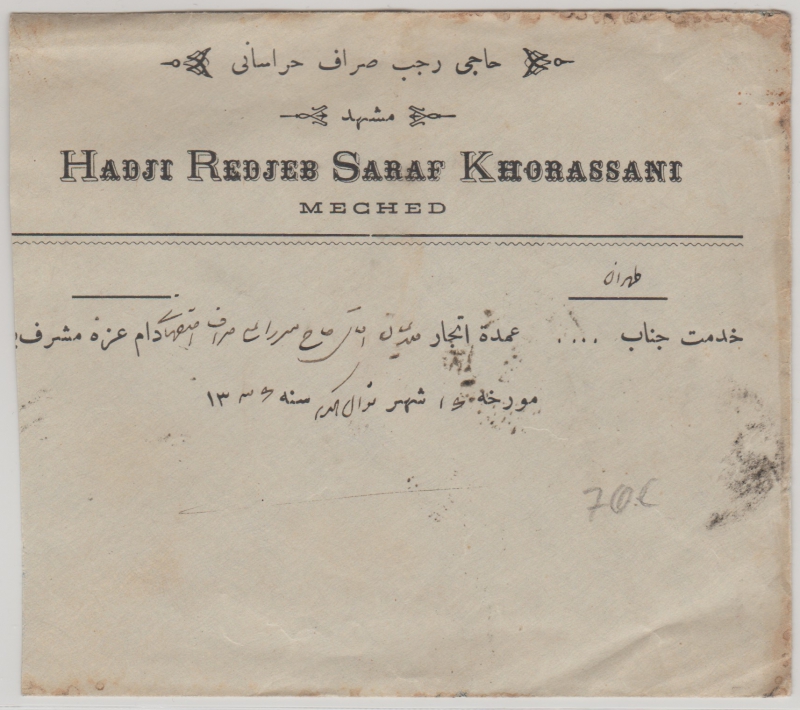 حاجی رجب صراف خراسانی
مشهد
HADJI REDJEB SARAF KHORASSANI
MECHED
طهران
خدمت جناب .... عمدة التجار آقای حاج صراف دام عزه مشرف
مورخه شهر شوال سنه ۱۳۳۶
70€